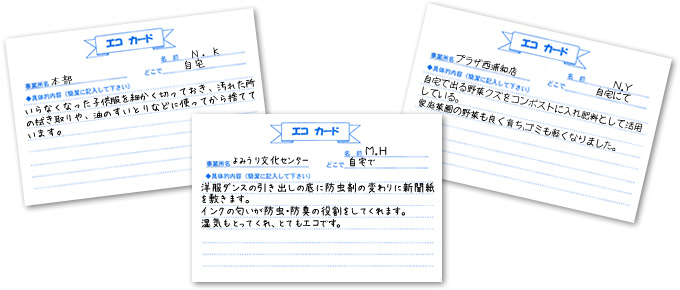 エコ カード
事業所名 本部
名 前 N．K
どこで 自宅
◆具体的内容（簡潔に記入して下さい）
いらなくなった子供服を細かく切っておき、汚れた所
の拭き取りや、油のすいとりなどに使ってから捨てて
います。
エコ カード
事業所名 よみうり文化センター
名 前 M.H
どこで 自宅で
◆具体的内容（簡潔に記入して下さい）
洋服ダンスの引き出しの底に防虫剤の変わりに新聞紙
を敷きます。
インクの匂いが防虫・防臭の役割をしてくれます。
湿気もとってくれ、とてもエコです。
エコ カード
事業所名 プラザ西浦和店
名 前 N.Y
どこで 自宅にて
◆具体的内容（簡潔に記入して下さい）
自宅で出る野菜クズをコンポストに入れ肥料として活用
している。
家庭菜園の野菜も良く育ち、ゴミも軽くなりました。